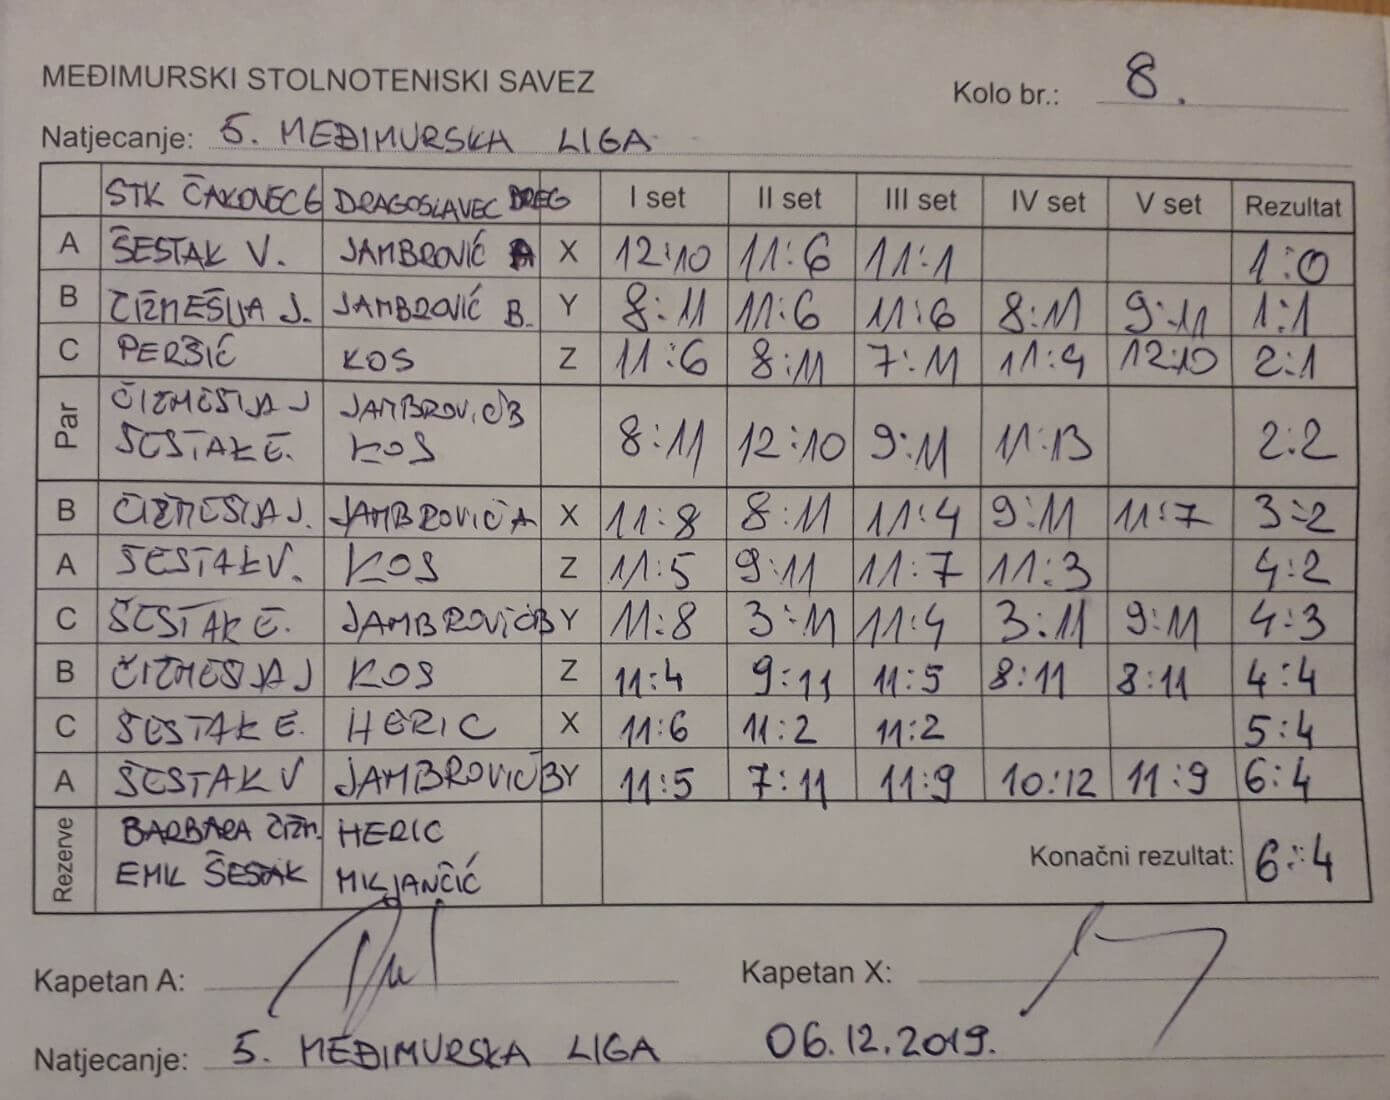 MEĐIMURSKI STOLNOTENISKI SAVEZ
Kolo br.: 8.
Natjecanje: 5. MEĐIMURSKA LIGA
STK ČAKOVEC 6 DRAGOSLAVEC BREG I set II set III set IV set V set Rezultat
A ŠESTAK V. JAMBROVIĆ A X 12:10 11:6 11:1 1:0
B ČIZMEŠIJA J. JAMBROVIĆ B. Y 8:11 11:6 11:6 8:11 9:11 1:1
C PERŠIĆ KOS Z 11:6 8:11 7:11 11:9 12:10 2:1
Par ČIZMEŠIJA J JAMBROVIĆ B
ŠESTAK E. KOS 8:11 12:10 9:11 11:13 2:2
B ČIZMEŠIJA J. JAMBROVIĆ A X 11:8 8:11 11:4 9:11 11:7 3:2
A ŠESTAK V. KOS Z 11:5 9:11 11:7 11:3 4:2
C ŠESTAK E. JAMBROVIĆ B Y 11:8 3:11 11:4 3:11 9:11 4:3
B ČIZMEŠIJA J KOS Z 11:4 9:11 11:5 8:11 8:11 4:4
C ŠESTAK E. HERIC X 11:6 11:2 11:2 5:4
A ŠESTAK V JAMBROVIĆ B Y 11:5 7:11 11:9 10:12 11:9 6:4
Rezerve BARBARA ČIZM. HERIC
EMIL ŠESTAK MILJANČIĆ Konačni rezultat: 6:4
Kapetan A: Kapetan X:
Natjecanje: 5. MEĐIMURSKA LIGA 06.12.2019.